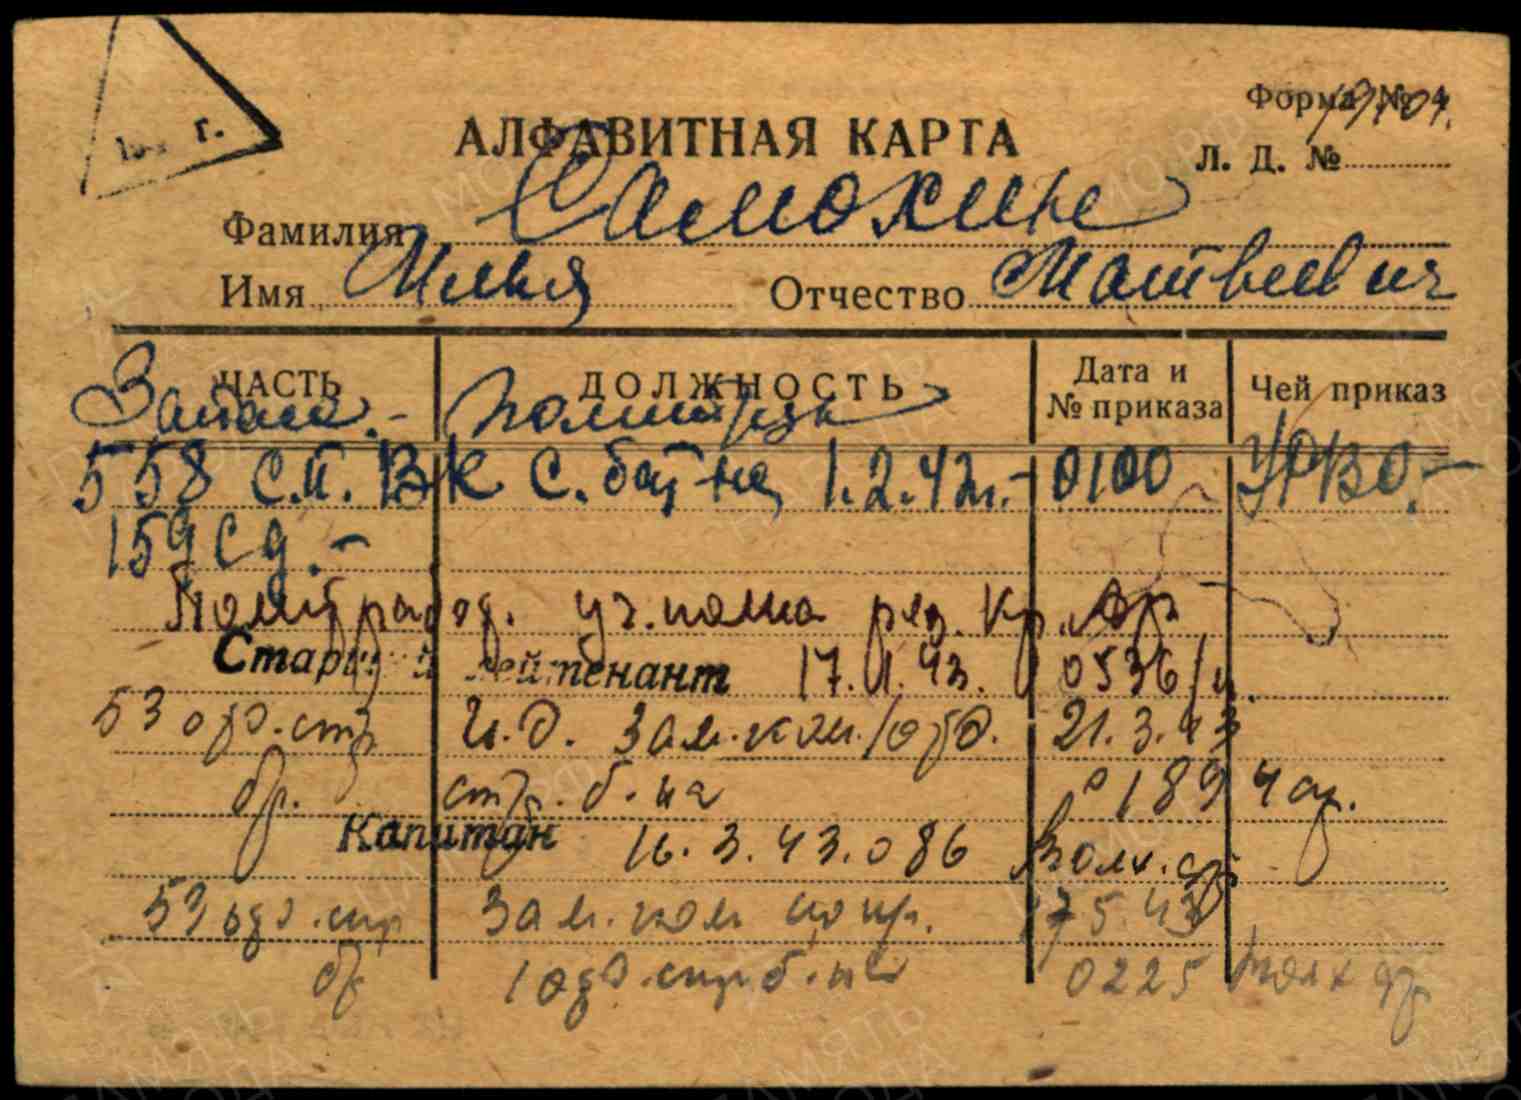 г.
Форма № 4
АЛФАВИТНАЯ КАРТА
Л. Д. №
Фамилия Самохин
Имя Илья Отчество Матвеевич
ЧАСТЬ ДОЛЖНОСТЬ Дата и № приказа Чей приказ
Запаса.- политрук
558 с.п. ВК с. бат-на 1.2.42г.- 0100 УРВО.-
159 сд.-
уч. полка рез. Кр.
Старший лейтенант 17.1.43. 0536/н.
53 отд. стр И.О. Зам. ком. 1 отд. 21.3.43
бр. стр. б-на 0189 4 ар.
Капитан 16.3.43. 086 Волх. фр.
53 отд. стр Зам. ком 5.43
бр 1 отд. стр. б-на 0225 Волх фр